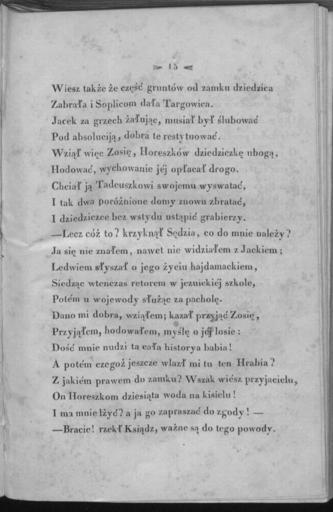 15
Wiesz także że część gruntów od zamku dziedzica
Zabrała i Soplicom dała Targowica.
Jacek za grzech żałując, musiał był ślubować
Pod absoluciją, dobra te restytuować.
Wziął więc Zosię, Horeszków dziedziczkę ubogą,
Hodować, wychowanie jéj opłacał drogo.
Chciał ją Tadeuszkowi swojemu wyswatać,
I tak dwa poróżnione domy znowu zbratać,
I dziedziczce bez wstydu ustąpić grabierzy.
—Lecz cóż to? krzyknął Sędzia, co do mnie należy?
Ja się nie znałem, nawet nie widziałem z Jackiem;
Ledwiem słyszał o jego życiu hajdamackiem,
Siedząc wtenczas retorem w jezuickiéj szkole,
Potém u wojewody służąc za pacholę.
Dano mi dobra, wziąłem; kazał przyjąć Zosię,
Przyjąłem, hodowałem, myślę o jéj losie:
Dość mnie nudzi ta cała historya babia!
A potém czegoż jeszcze wlazł mi tu ten Hrabia?
Z jakiém prawem do zamku? Wszak wiész przyjacielu,
On Horeszkom dziesiąta woda na kisielu!
I ma mnie lżyć? a ja go zapraszać do zgody! —
—Bracie! rzekł Ksiądz, ważne są do tego powody.